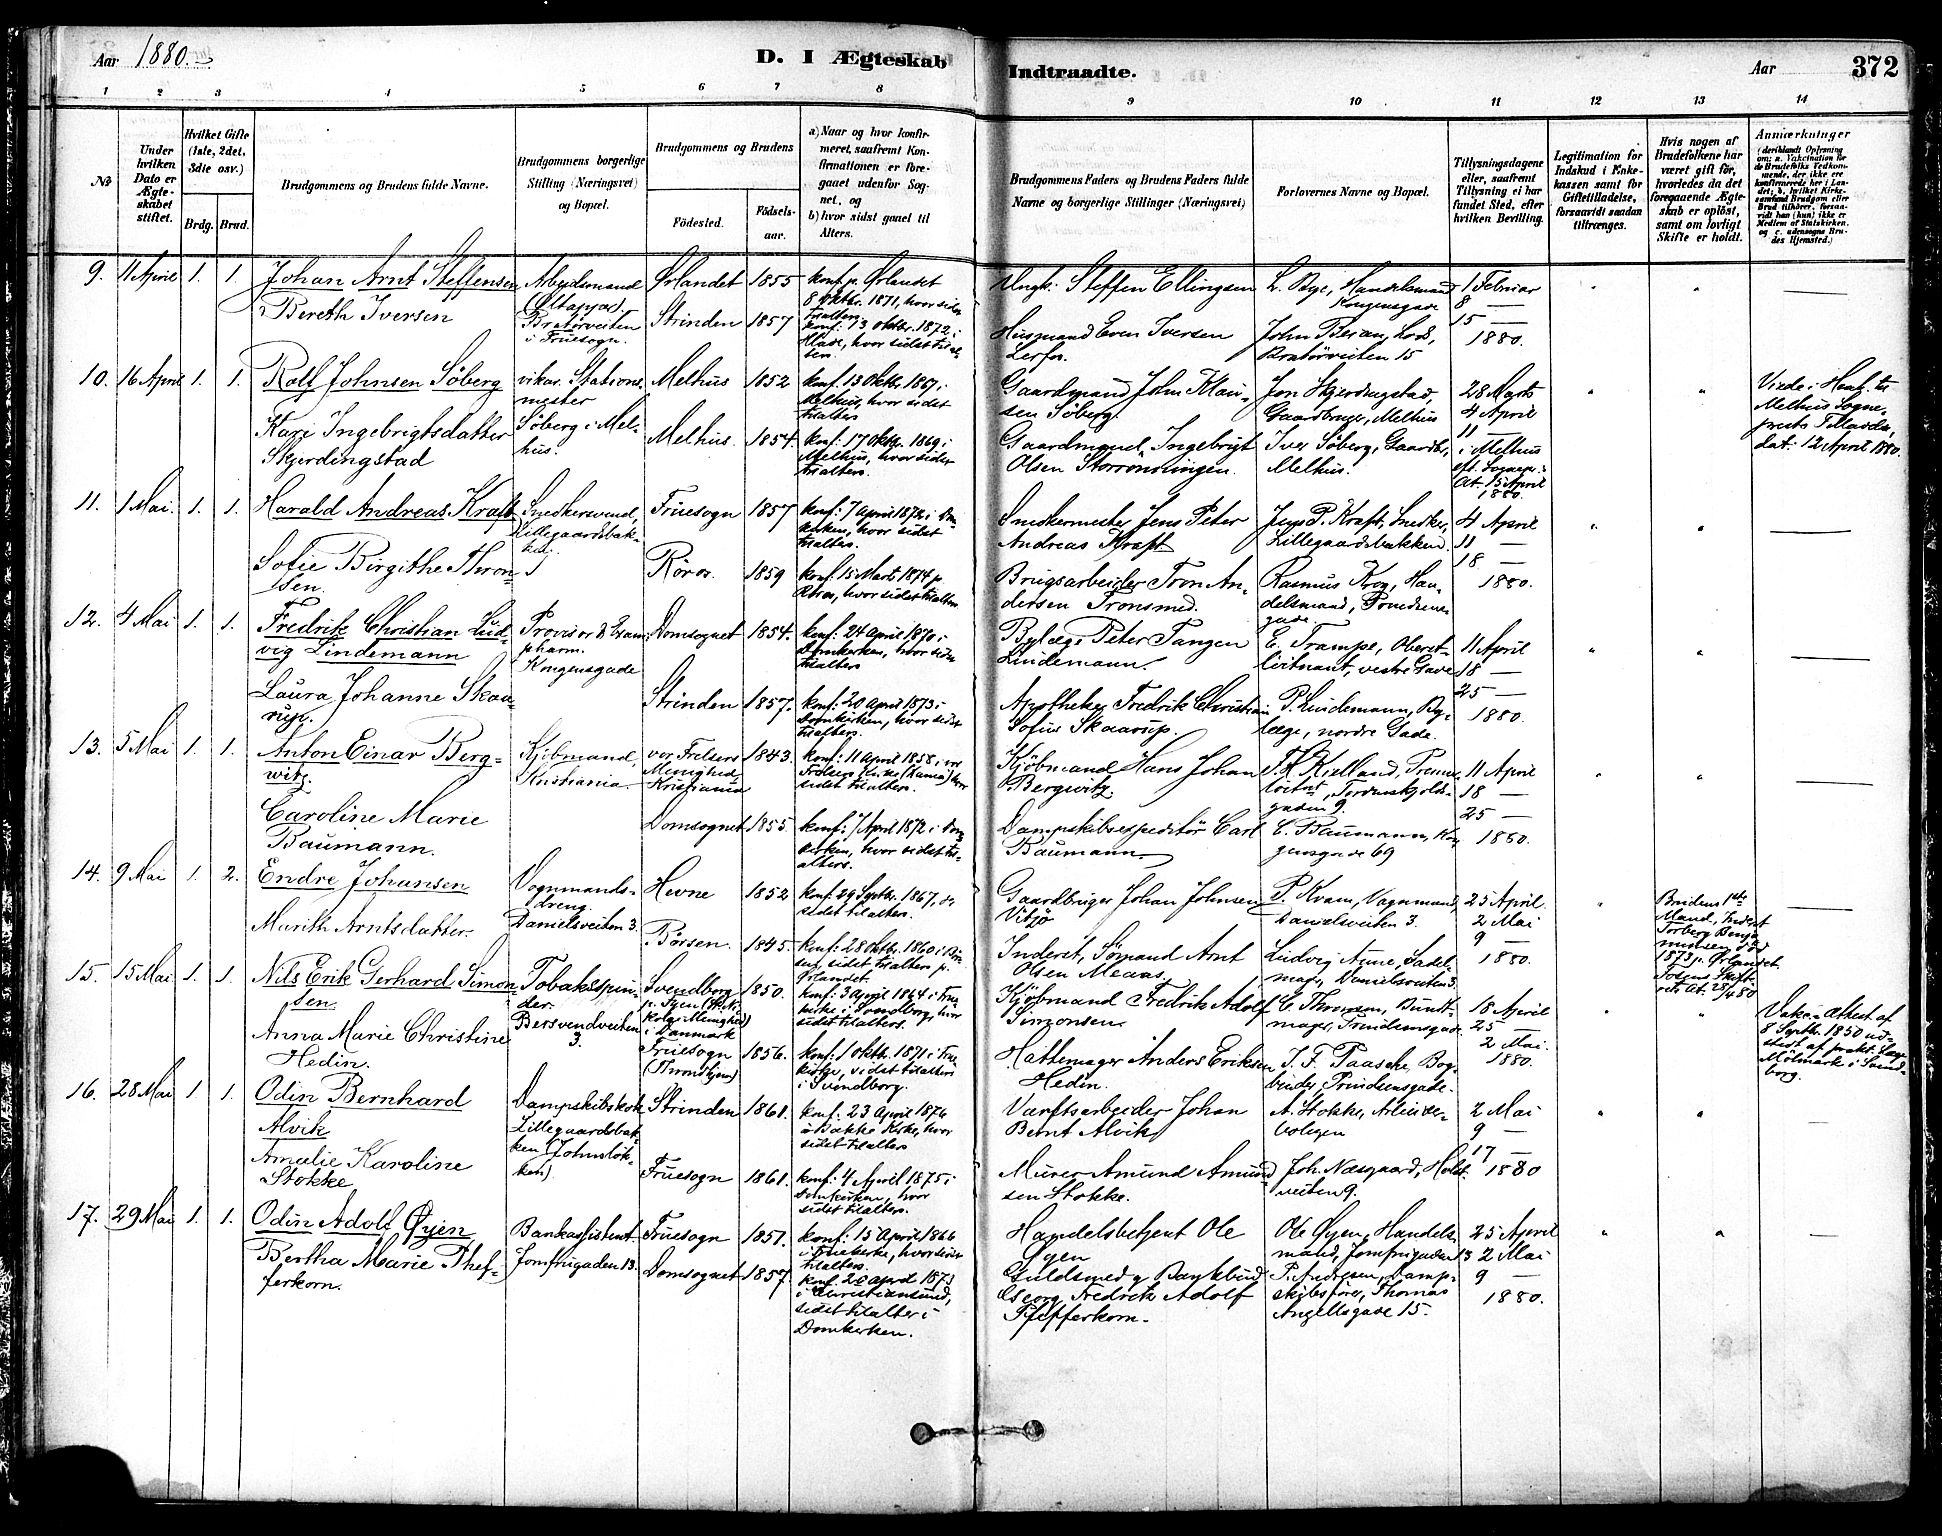 Aar 1880.
D. I Ægteskab Indtraadte.
Aar
372
1 2 3 4 5 6 7 8 9 10 11 12 13 14
No
Under hvilken Dato er Ægteskabet stiftet.
Hvilket Gifte (1ste, 2det, 3die osv.)
Brdg. Brud.
Brudgommens og Brudens fulde Navne.
Brudgommens borgerlige Stilling (Næringsvei) og Bopæl.
Brudgommens og Brudens
Födested.
Födselsaar.
a) Naar og hvor konfirmeret, saafremt Konfirmationen er foregaaet udenfor Sognet, og
b) hvor sidst gaaet til Alters.
Brudgommens Faders og Brudens Faders fulde Navne og borgerlige Stillinger (Næringsvei)
Forlovernes Navne og Bopæl.
Tillysningsdagene eller, saafremt Tillysning ei har fundet Sted, efter hvilken Bevilling.
Legitimation for Indskud i Enkekassen samt for Giftetilladelse, forsaavidt saadan tiltrænges.
Hvis nogen af Brudefolkene har været gift för, hvorledes da det foregaaende Ægteskab er oplöst, samt om lovligt Skifte er holdt.
Anmærkninger
9. 11 April 1. 1. Johan Arnt Steffensen
Bereth Iversen
Arbeidsmand
Bratörveiten
i Fruesogn.
Ørlandet 1855
Strinden 1857
konf. p. Ørlandet
8 Oktbr. 1871, hvor sidst
tilalters.
konf. 13 Oktbr. 1872 i
Lade, hvor sidst tilal-
ters.
Ungk. Steffen Ellingsen
Husmand Even Iversen
L. Bye, Handelsmand
Kongensgade
Bratörveiten 15
1 Februar
8 —
15 —
1880.
10. 16 April 1. 1. Rolf Johnsen Söberg
Kari Ingebrigtsdatter
Skjerdingstad
vikar. Stations-
mester
Söberg i Mel-
hus.
Melhus 1852
Melhus. 1854.
konf. 13 Oktbr. 1867 i
Melhus, hvor sidst
tilalters
konf. 17 Oktbr. 1869 i
Melhus, hvor sidst
tilalters.
Gaardmand John Klau-
sen Söberg.
Gaardmand Ingebrigt
Olsen Storrönningen.
Jon Skjerdingstad,
Gaardbruger, Melhus
Iver Söberg, Gaardbr,
Melhus.
28 Marts
4 April
11 —
i Melhus
eft. Sognepr.s
At. 15 April
1880.
Viede i Henh. til
Melhus Sogne-
prests Tilladelse
dat. 12 April 1880.
11. 1 Mai. 1. 1. Harald Andreas Kraft
Sofie Birgithe Theron-
sen.
Snedkersvend,
Lillegaardsbak-
ken.
Fruesogn 1857
Röros. 1859
konf. 7 April 1872 i Dom-
kirken, hvor sidst
tilalters.
konf. 15 Marts 1874 p.
Röros, hvor sidst tilalters
Snedkermester Jens Peter
Andreas Kraft
Brugsarbeider Tron An-
dersen Tronsmed.
Jens P. Kraft, Snedker,
Lillegaardsbakken.
Rasmus Krog, Han-
delsmand,
gade.
4 April
11 —
18 —
1880.
12. 4 Mai 1. 1. Fredrik Christian Lud-
vig Lindemann
Laura Johanne Skaa-
rup.
Provisor & Exam.
pharm.
Kongensgade
Domsognet 1854.
Strinden 1857.
konf. 24 April 1870 i
Domkirken, hvor sidst
tilalters
konf. 20 April 1873 i
Domkirken, hvor sidst
tilalters.
Bylæge Peter Tangen
Lindemann.
Apotheker Fredrik Christian
Sofus Skaarup.
E. Trampe, Oberst-
löitnant, vestre Gade
P. Lindemann, By-
læge, nordre Gade.
11 April
18 —
25 —
1880.
13. 5 Mai 1. 1. Anton Einar Berg-
witz.
Caroline Marie
Baumann.
Kjöbmand,
Kristiania.
vor Frelsers
Menighed,
Kristiania 1843.
Domsognet 1855.
konf. 11 April 1858 i vor
Frelsers Kirke (Xania) hvor
sidst tilalters.
konf. 7 April 1872 i Dom-
kirken, hvor sidst til-
alters.
Kjöbmand Hans Johan
Bergwitz.
Dampskibsexpeditör Carl
Baumann.
Kielland, Premier-
löitnt, Tordenskjolds-
gaden 9.
C. Baumann, Kon-
gensgade 69
11 April
18 —
25 —
1880.
14. 9 Mai 1. 2. Endre Johansen
Marith Arntsdatter.
Vognmands-
dreng.
Danielsveiten 3.
Hevne 1852
Börsen. 1845.
konf. 29 Septbr. 1867,
sidst tilalters.
konf. 28 Oktbr. 1860 i Bör-
sen, sidst tilalters p.
Ørlandet.
Gaardbruger Johan Johnsen
Vitsö
Inderst, Sömand Arnt
Olsen Meaas.
P. Kvam, Vognmand,
Danielsveiten 3.
Ludvig Aune, Sadel-
mager, Danielsveiten 3.
25 April
2 Mai
9 —
1880.
Brudens 1ste
Mand, Inderst
Torberg Benja-
minsen död
1873 p. Ørlandet.
Fosens Skifte-
rets At. 28/4 80
15. 15 Mai. 1. 1. Nils Erik Gerhard Simon-
sen.
Anna Marie Christine
Hedin.
Tobaksspin-
der.
Bersvendveiten
3.
Svendborg
p. Fyen (St. Ni-
kolaj Menighed)
i Danmark 1850.
Fruesogn
(Thronhjem) 1856.
konf. 3 April 1864 i Frue-
kirke i Svendborg, hvor
sidst tilalters.
konf. 1 Oktbr. 1871 i Frue-
kirke, sidst tilalters
i Svendborg.
Kjöbmand Fredrik Adolf
Simonsen.
Hattemager Anders Eriksen
Hedin.
C. Thomsen, Bundt-
mager, Prindsensgade.
J. F. Paasche, Bog-
binder, Prindsensgade.
18 April
25 —
2 Mai.
1880.
Vakc.-Attest af
8 Septbr. 1850 ud-
stedt af prakt. Læge
Mölmark i Svend-
borg.
16. 28 Mai 1. 1. Odin Bernhard
Alvik
Amalie Karoline
Stokke
Dampskibskok
Lillegaardsbak-
ken (Johnslök-
ken).
Strinden 1861.
Fruesogn 1861.
konf. 23 April 1876
i Bakke Kirke, hvor
sidst tilalters
konf. 4 April 1875 i
Domkirken, hvor
sidst tilalters.
Værftsarbeider Johan
Bernt Alvik
Murer Amund Amund-
sen Stokke.
A. Stokke, Arbeider-
boligen
Joh. Næsgaard, Holst-
veiten 9.
2 Mai
9 —
17 —
1880
17. 29 Mai 1. 1. Odin Adolf Øyen
Bertha Marie Pfef-
ferkorn.
Bankassistent
Jomfrugaden 13.
Fruesogn 1851.
Domsognet 1857.
konf. 15 April 1866
i Fruekirke, hvor sidst
tilalters.
konf. 20 April 1873
i Christiansund,
sidst tilalters i
Domkirken.
Handelsbetjent Ole
Øyen
Guldsmed g Bankbud
Georg Fredrik Adolf
Pfefferkorn.
Ole Øyen, Handels-
mand, Jomfrugaden 13
P. Andresen, Damp-
skibsförer, Thomas
Angellsgade 15.
25 April
2 Mai
9 —
1880.